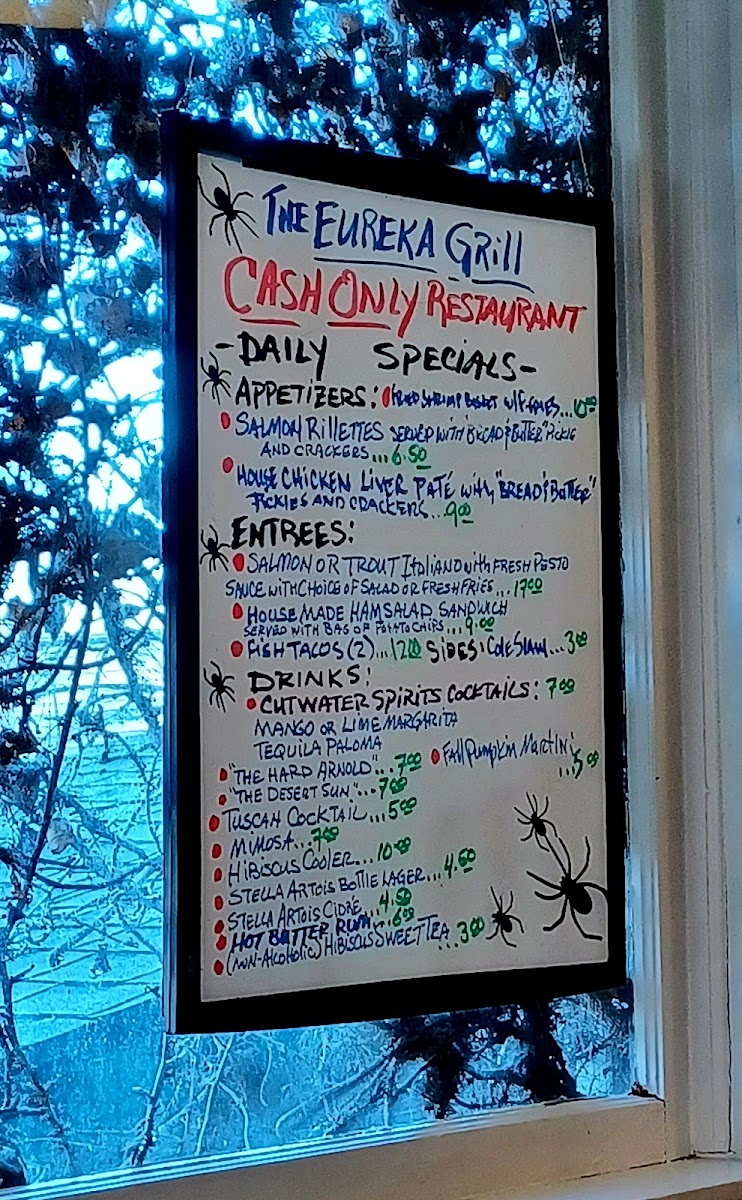 THE EUREKA GRill
CASH ONLY RESTAURANT
-DAILY SPECIALS-
APPETIZERS: FRIED SHRIMP BASKET W/FRIES...10.00
SALMON RillETTES SERVED WITH BREAD & BUTTER" PICKLE
AND CRACKERS...6.50
HOUSE CHICKEN LIVER PATÉ with "BREAD & BUTTER"
PICKLES AND CRACKERS...9.00
ENTREES:
SALMON OR TROUT Italiano with FRESH PESTO
SAUCE WITH CHOICE OF SALAD OR FRESH FRIES...17.00
HOUSE MADE HAM SALAD SANDWICH
SERVED WITH BAG OF POTATO CHIPS...9.00
FISH TACOS (2)...12.00 SIDES: Cole Slaw...3.00
DRINKS:
CUTWATER SPIRITS COCKTAILS: 7.00
MANGO OR LIME MARGARITA
TEQUILA PALOMA
Fall Pumpkin Martini
...5.00
"THE HARD ARNOLD"...7.00
"THE DESERT SUN"...7.00
TUSCAN COCKTAIL...5.00
MIMOSA...7.00
HIBISCUS COOLER...10.00
STELLA ARTOIS BOTTLE LAGER...4.50
STELLA ARTOIS CIDRE...4.50
HOT BUTTER RUM...6.00
(NON-ALCOHOLIC) HIBISCUS SWEET TEA...3.00